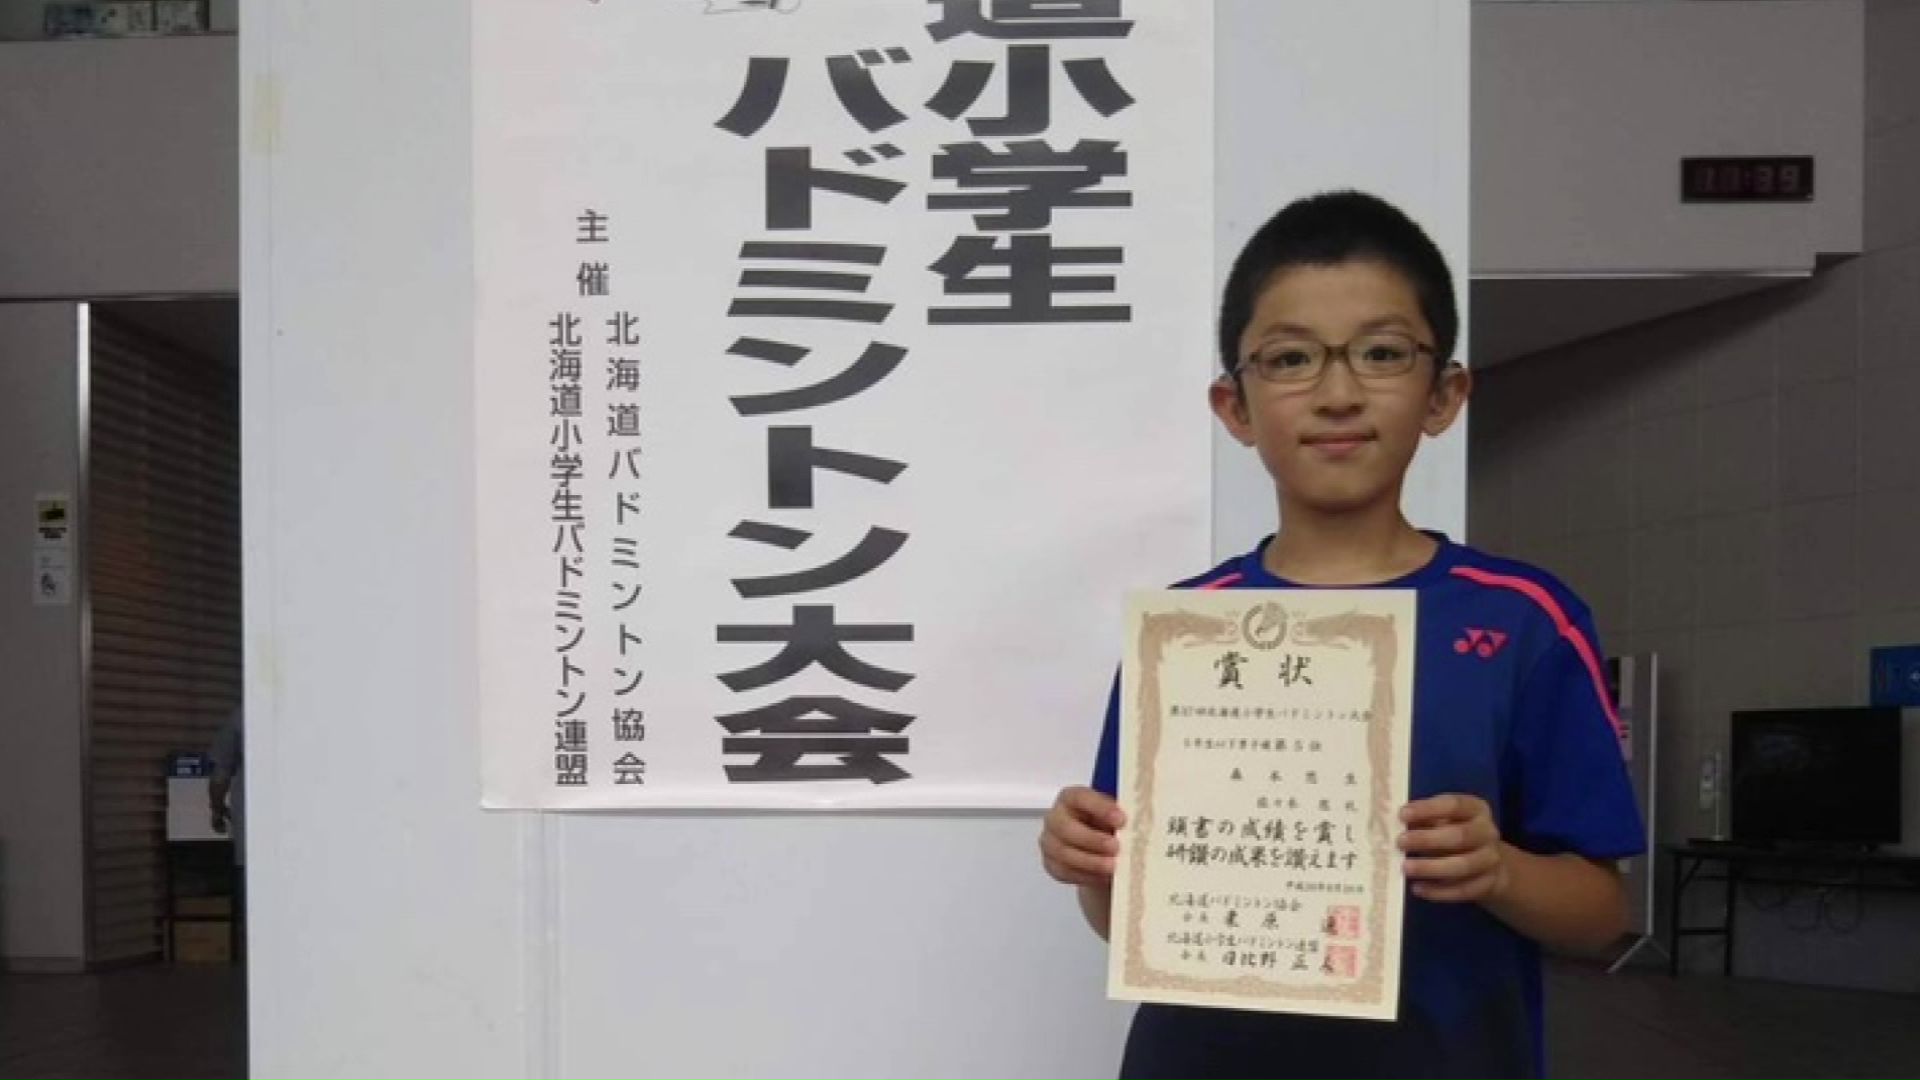 道小学生
バドミントン大会
主催
北海道バドミントン協会
北海道小学生バドミントン連盟
賞状
北海道小学生バドミントン大会
第5位
頭書の成績を賞し
研鑽の成果を讃えます
北海道バドミントン協会
会長 栗原
北海道小学生バドミントン連盟
会長 日比野 正